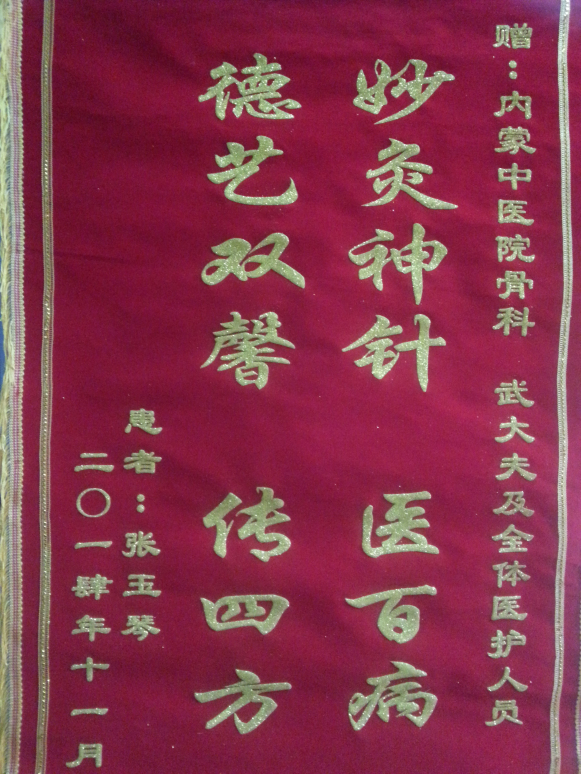 赠：内蒙中医院骨科 武大夫及全体医护人员
妙灸神针 医百病
德艺双馨 传四方
患者：张玉琴
二〇一肆年十一月